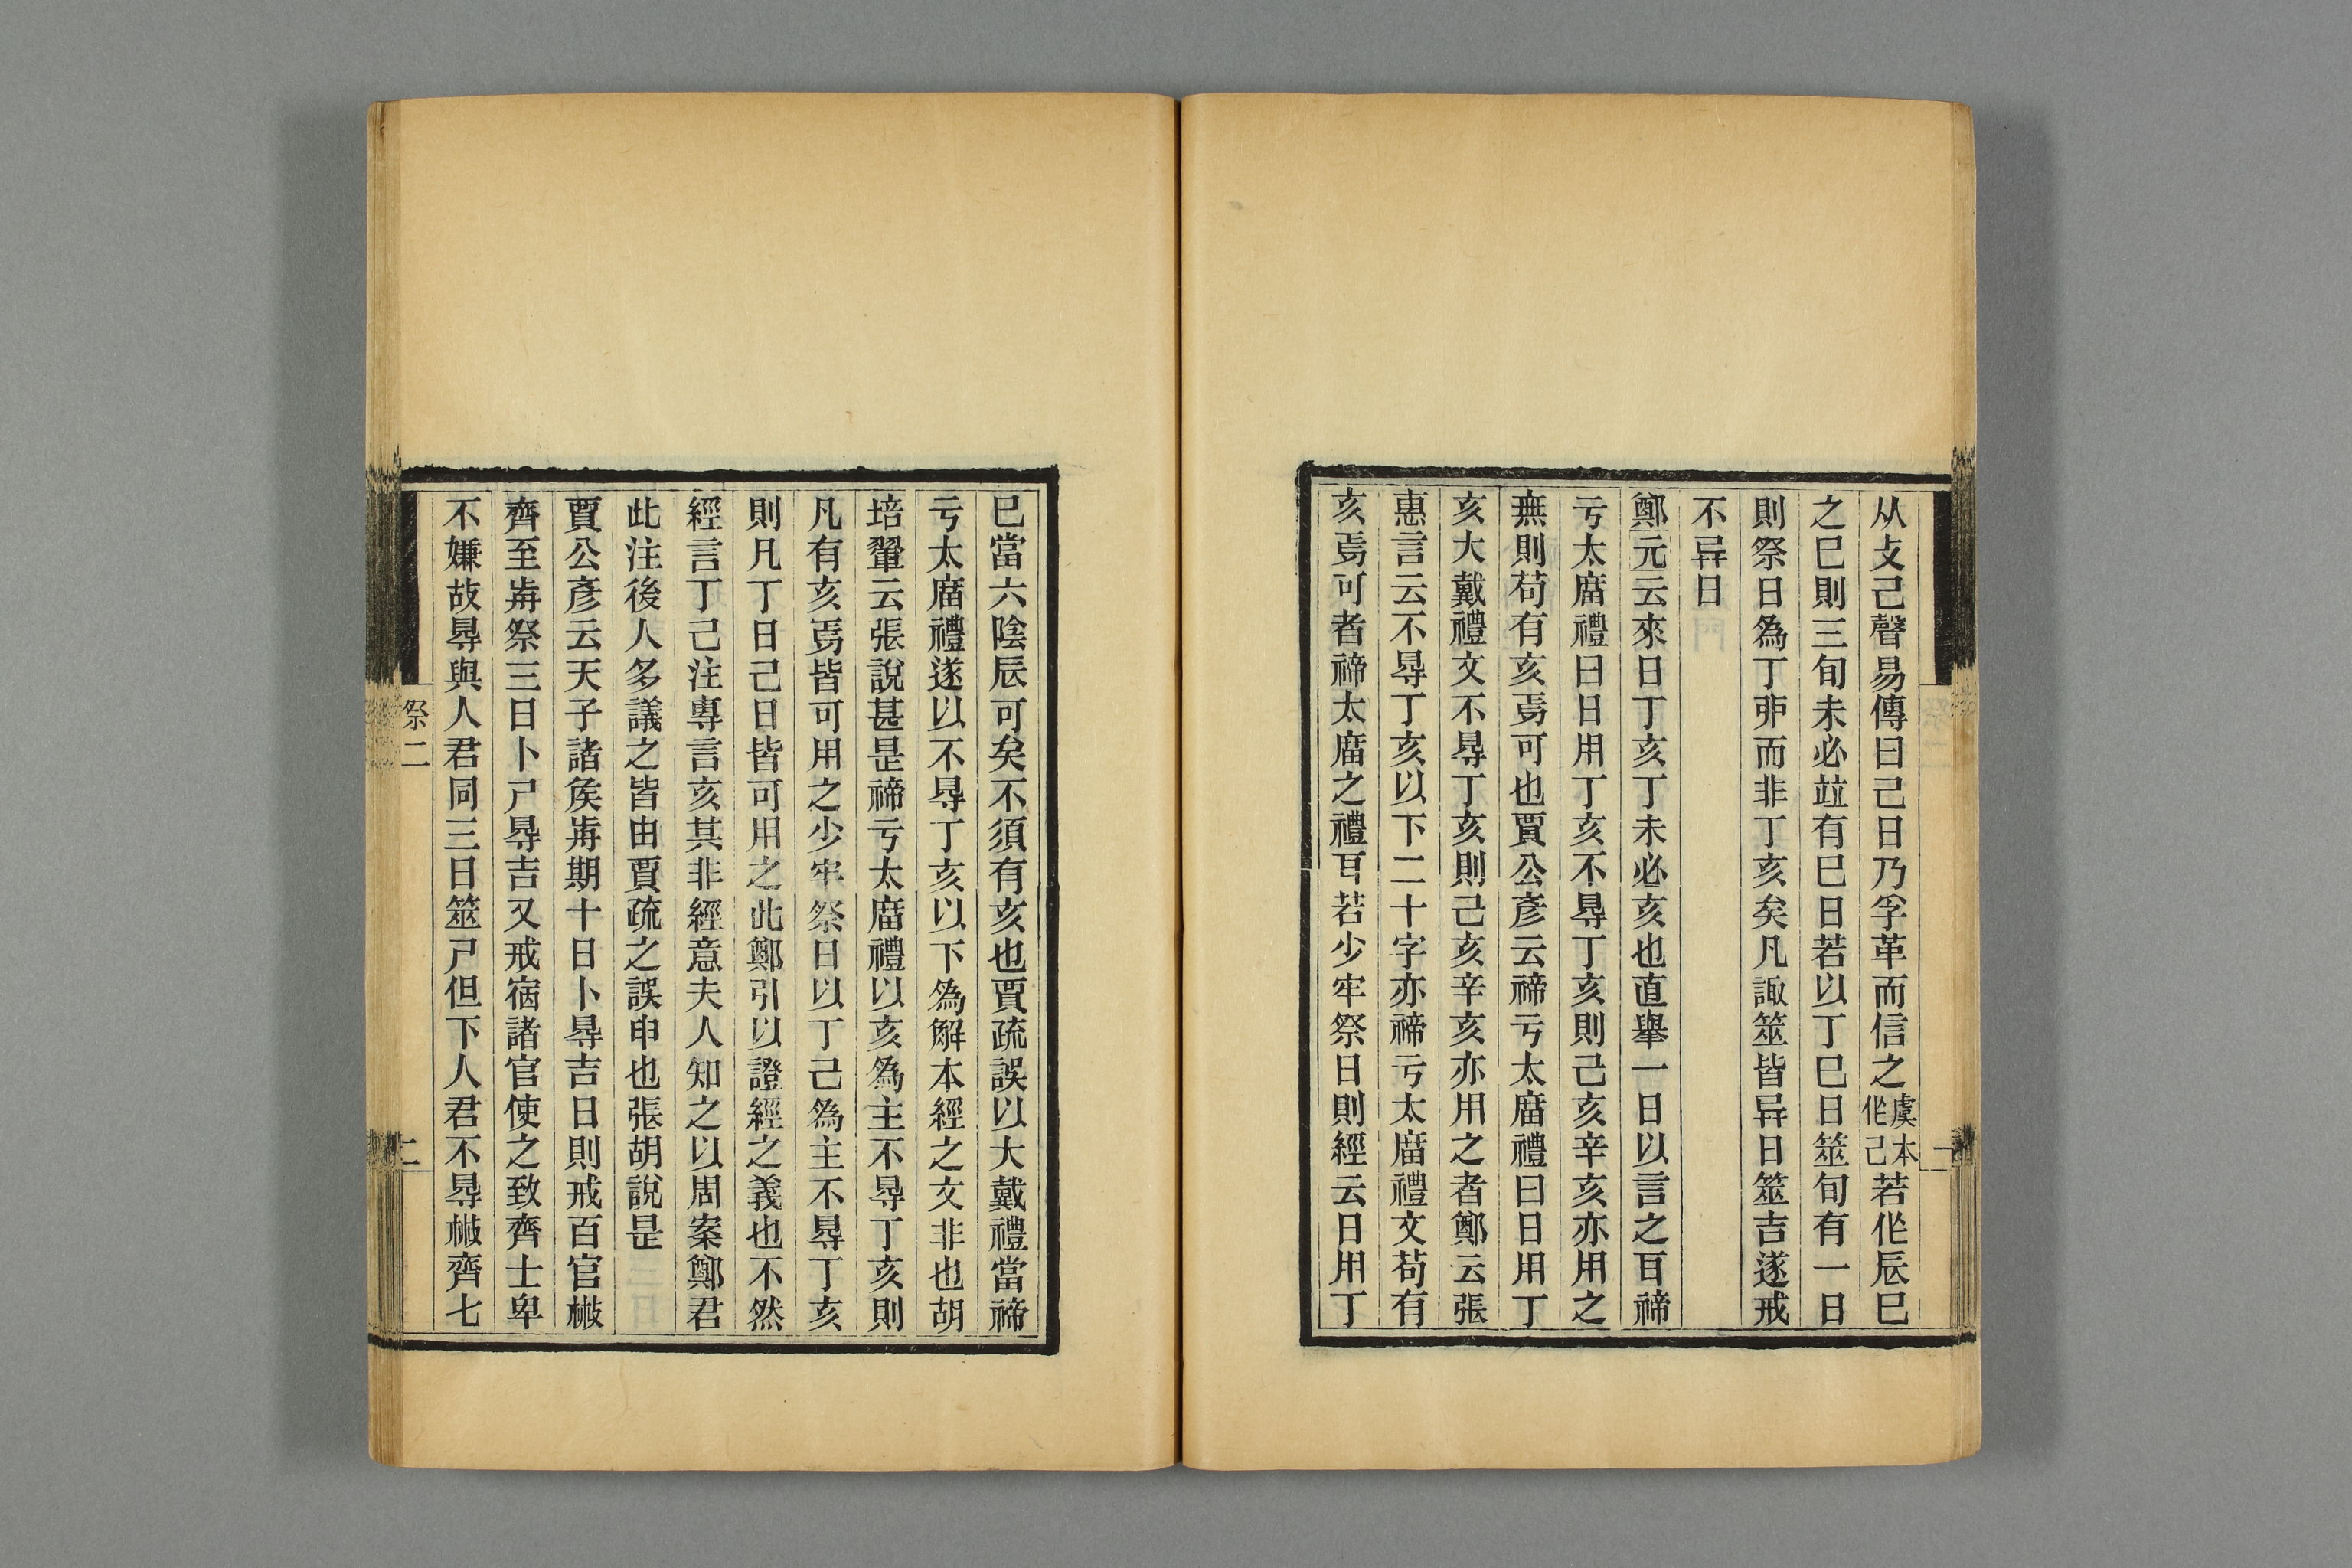 从攴己聲易傳曰己日乃孚革而信之虞本作己若作辰巳
之巳則三旬未必竝有巳日若以丁巳日筮旬有一日
則祭日爲丁丣而非丁亥矣凡諏筮皆异日筮吉遂戒
不异日
鄭元云來日丁亥丁未必亥也直舉一日以言之耳禘
亏太庿禮曰日用丁亥不㝵丁亥則己亥辛亥亦用之
無則苟有亥焉可也賈公彥云禘亏太庿禮曰日用丁
亥大戴禮文不㝵丁亥則己亥辛亥亦用之者鄭云張
惠言云不㝵丁亥以下二十字亦禘亏太庿禮文苟有
亥焉可者禘太庿之禮耳若少牢祭日則經云日用丁
巳當六陰辰可矣不須有亥也賈疏誤以大戴禮當禘
亏太庿禮遂以不㝵丁亥以下爲解本經之文非也胡
培翬云張說甚是禘亏太庿禮以亥爲主不㝵丁亥則
凡有亥焉皆可用之少牢祭日以丁己爲主不㝵丁亥
則凡丁日己日皆可用之此鄭引以證經之義也不然
經言丁己注專言亥其非經意夫人知之以周案鄭君
此注後人多議之皆由賈疏之誤申也張胡說是
賈公彥云天子諸矦歬期十日卜㝵吉日則戒百官㪔
齊至歬祭三日卜尸㝵吉又戒宿諸官使之致齊士卑
不嫌故㝵與人君同三日筮尸但下人君不㝵㪔齊七
祭二
二